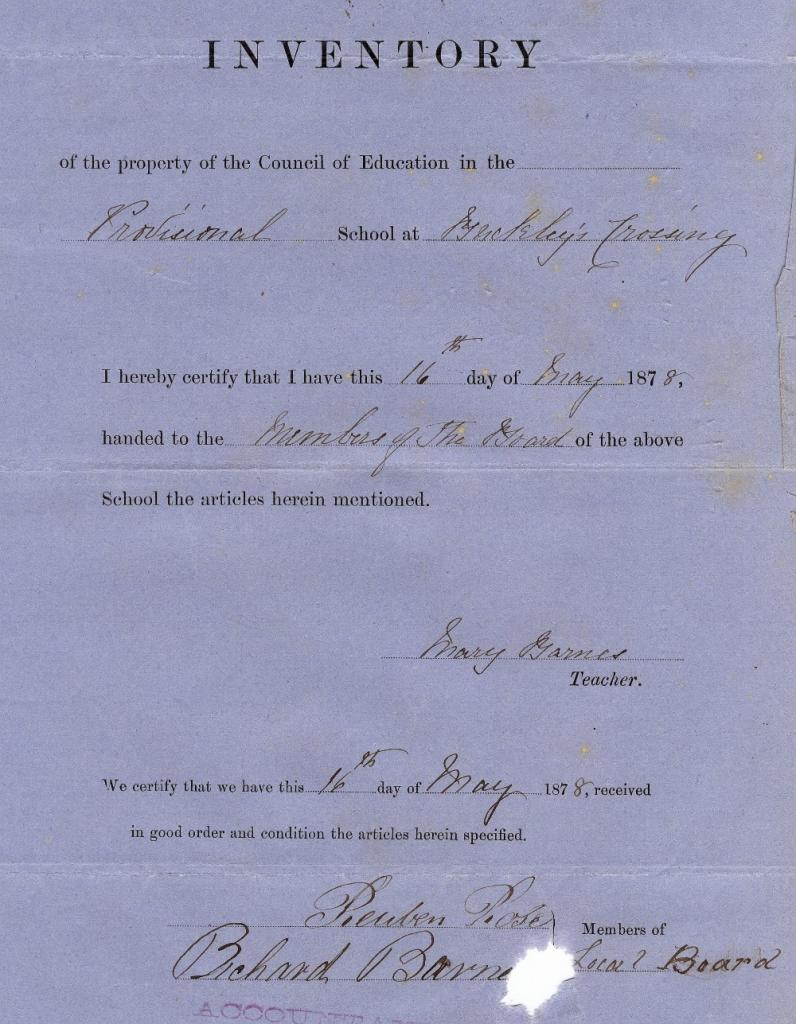 INVENTORY
of the property of the Council of Education in the
Provisional School at Buckley's Crossing
I hereby certify that I have this 16th day of May 1878,
handed to the Members of The Board of the above
School the articles herein mentioned.
Mary Barnes
Teacher.
We certify that we have this 16th day of May 1878, received
in good order and condition the articles herein specified.
Reuben Rose
Members of
Richard Barne Local Board